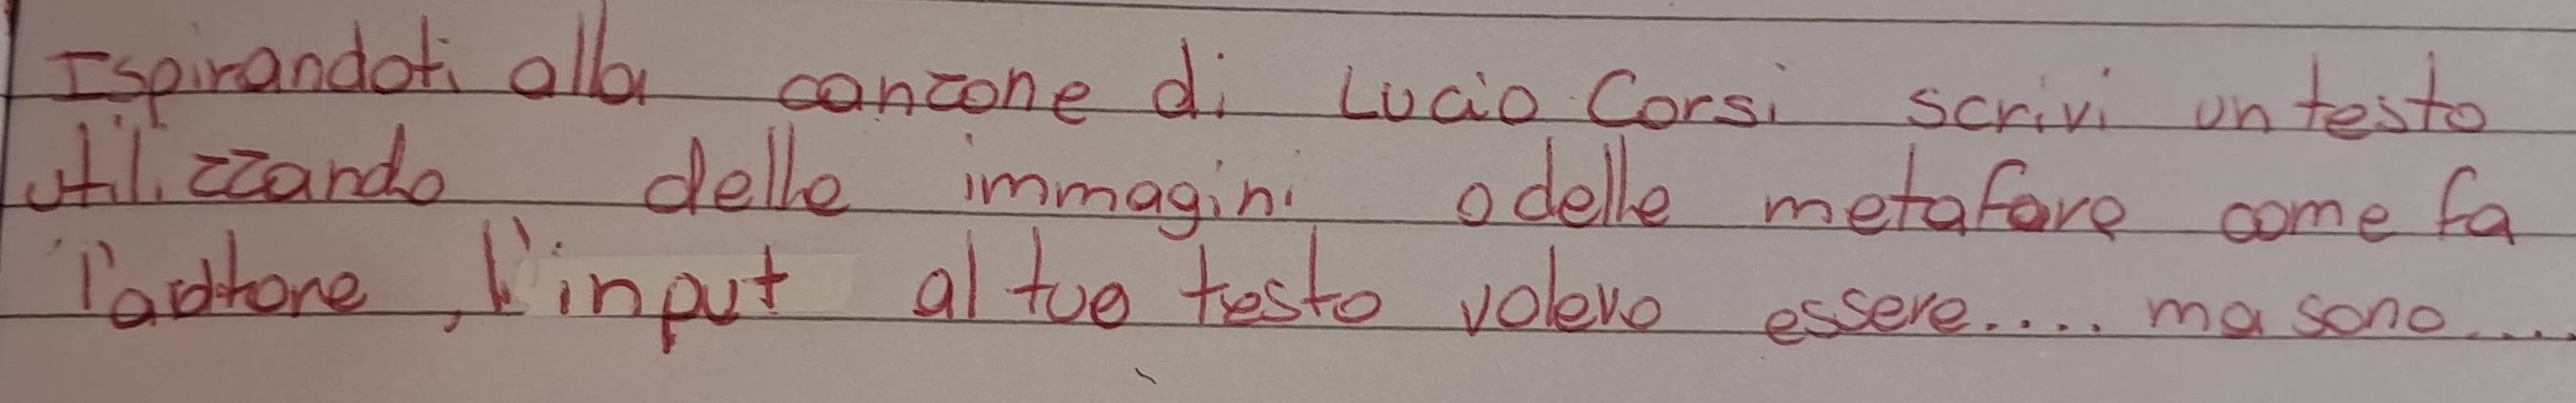 Ispirandoti alla canzone di Lucio Corsi scrivi un testo
utilizzando delle immagini o delle metafore come fa
l'autore, l'input al tuo testo volevo essere.... ma sono....